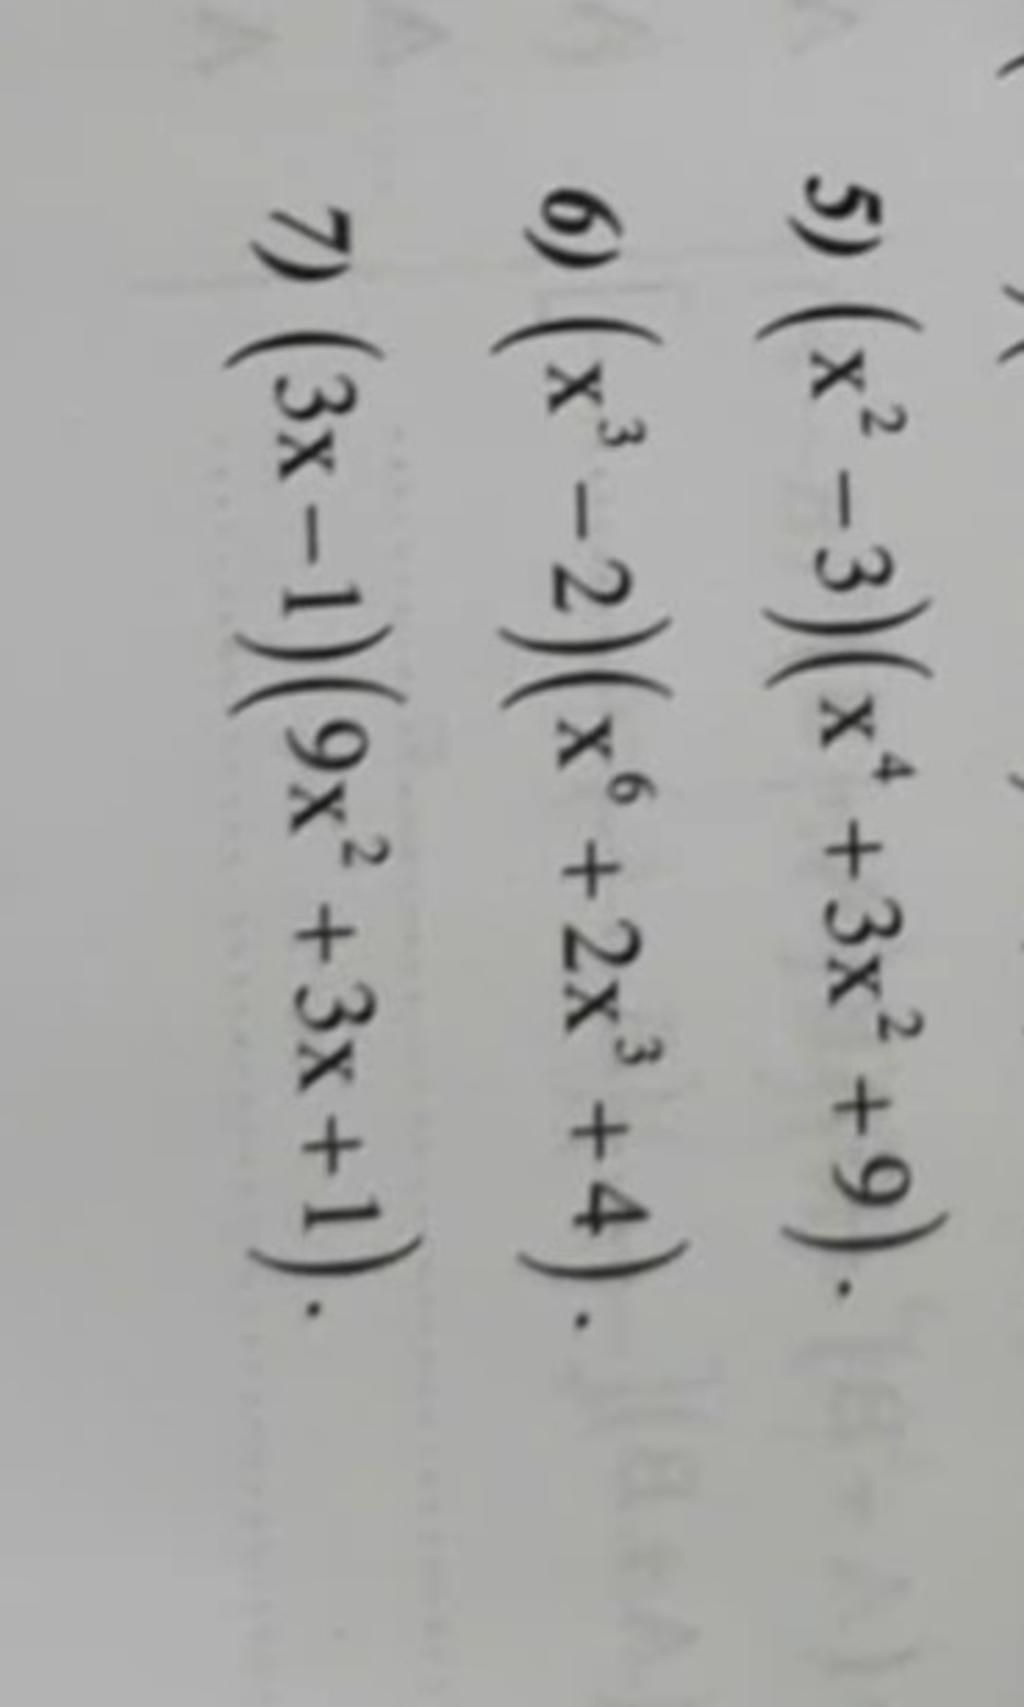 5) (x² − 3)(x⁴ + 3x² + 9).
6) (x³ − 2)(x⁶ + 2x³ + 4).
7) (3x − 1)(9x² + 3x + 1).